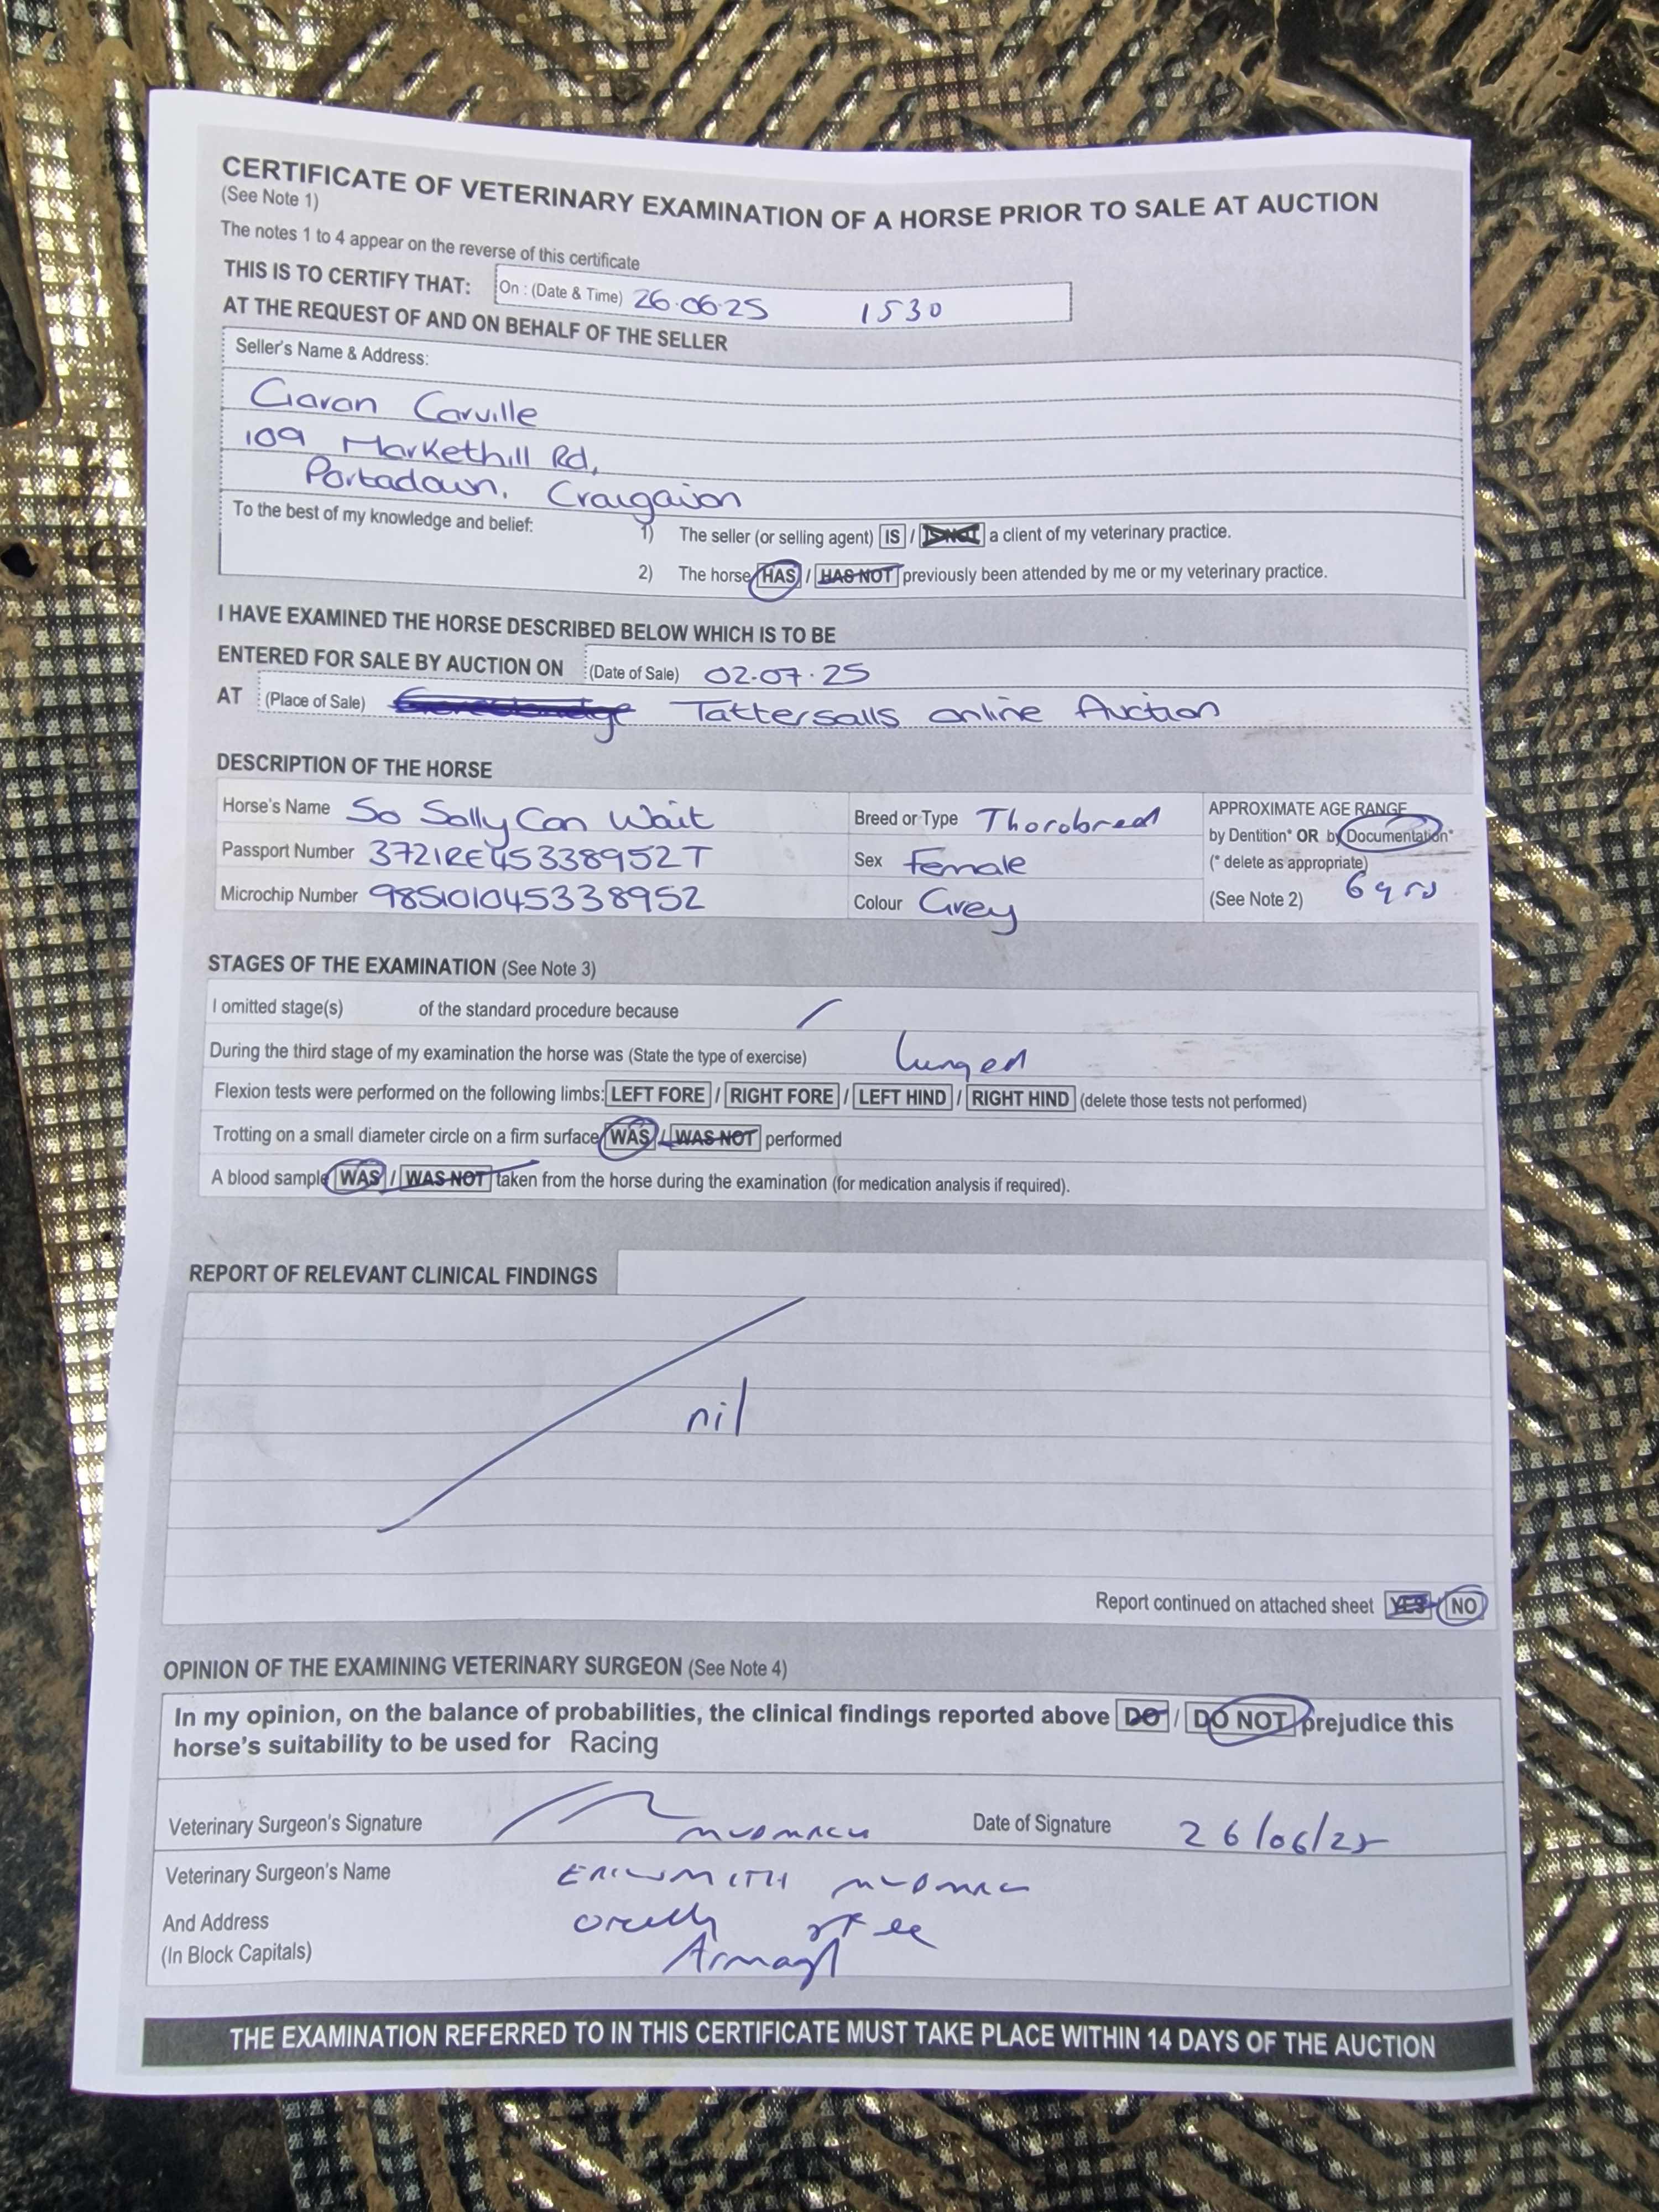 CERTIFICATE OF VETERINARY EXAMINATION OF A HORSE PRIOR TO SALE AT AUCTION
(See Note 1)
The notes 1 to 4 appear on the reverse of this certificate
THIS IS TO CERTIFY THAT: On : (Date & Time) 26.06.25 1530
AT THE REQUEST OF AND ON BEHALF OF THE SELLER
Seller's Name & Address:
Ciaran Carville
109 Markethill Rd,
Portadown, Craigavon
To the best of my knowledge and belief: 1) The seller (or selling agent) IS / IS NOT a client of my veterinary practice.
2) The horse HAS / HAS NOT previously been attended by me or my veterinary practice.
I HAVE EXAMINED THE HORSE DESCRIBED BELOW WHICH IS TO BE
ENTERED FOR SALE BY AUCTION ON (Date of Sale) 02.07.25
AT (Place of Sale) Tattersalls online Auction
DESCRIPTION OF THE HORSE
Horse's Name So Sally Can Wait Breed or Type Thorobred APPROXIMATE AGE RANGE
by Dentition* OR by Documentation*
Passport Number 372IRE45338952T Sex Female (* delete as appropriate)
Microchip Number 985101045338952 Colour Grey (See Note 2) 6 yrs
STAGES OF THE EXAMINATION (See Note 3)
I omitted stage(s) of the standard procedure because /
During the third stage of my examination the horse was (State the type of exercise) lunged
Flexion tests were performed on the following limbs: LEFT FORE / RIGHT FORE / LEFT HIND / RIGHT HIND (delete those tests not performed)
Trotting on a small diameter circle on a firm surface WAS / WAS NOT performed
A blood sample WAS / WAS NOT taken from the horse during the examination (for medication analysis if required).
REPORT OF RELEVANT CLINICAL FINDINGS
nil
Report continued on attached sheet YES / NO
OPINION OF THE EXAMINING VETERINARY SURGEON (See Note 4)
In my opinion, on the balance of probabilities, the clinical findings reported above DO / DO NOT prejudice this
horse's suitability to be used for Racing
Veterinary Surgeon's Signature Date of Signature 26/06/25
Veterinary Surgeon's Name
And Address
(In Block Capitals) Armagh
THE EXAMINATION REFERRED TO IN THIS CERTIFICATE MUST TAKE PLACE WITHIN 14 DAYS OF THE AUCTION